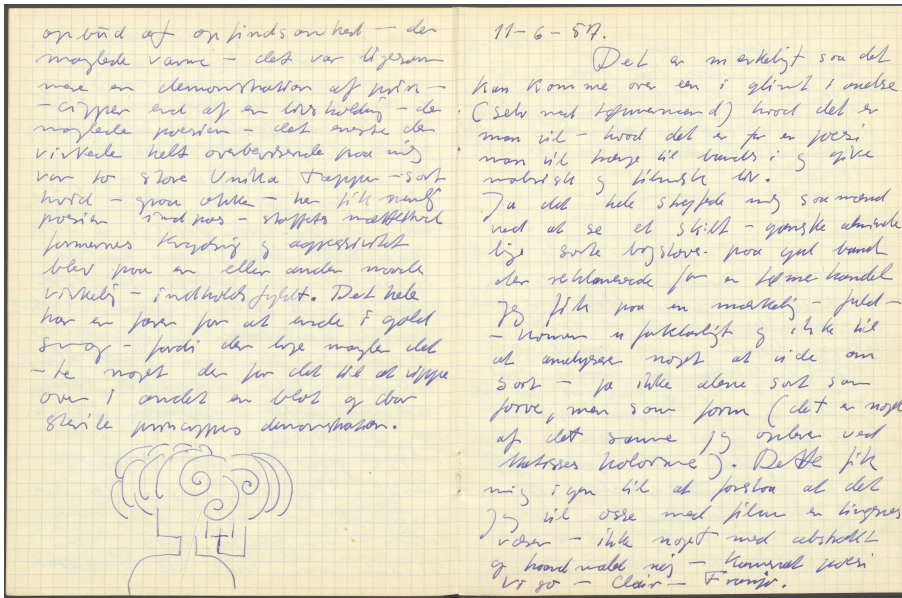 opbud af opfindsomhed – der
manglede varme – det var ligesom
mere en demonstration af prin-
-cipper end af en livsholdning – der
manglede poesien – det eneste der
virkede helt overbevisende paa mig
var to store Unika Tæpper – sort
hvid – graa – her fik
poesien ind – stoffets
formernes og aggressivitet
blev paa en eller anden maade
virkelig – indholdsfyldt. Det hele
har en fare for at ende i gold
smag – fordi der lige mangler det
– te noget der før det til at vippe
over i andet en blot og bar
sterile princippers demonstration.
11-6-57.
Det er mærkeligt saa det
kan komme over een i glimt i
(selv med tømmermænd) hvad det er
man vil – hvad det er for en poesi
man vil til og give
og filmisk liv.
Ja det hele mig saamænd
ved at se et skilt – ganske alminde
lige sorte bogstaver paa gul bund
der reklamerede for en handel
Jeg fik paa en mærkelig – fuld-
– kommen uforklarligt og ikke til
at analysere noget at vide om
sort – ja ikke alene sort som
farve, men som form (det er noget
af det samme jeg oplever ved
Matisses kolorisme). Dette fik
mig igen til at forstaa at det
jeg vil osse med film er tingenes
væsen – ikke noget med abstrakt
og – konkret poesi
Vigo – Clair – Franju.